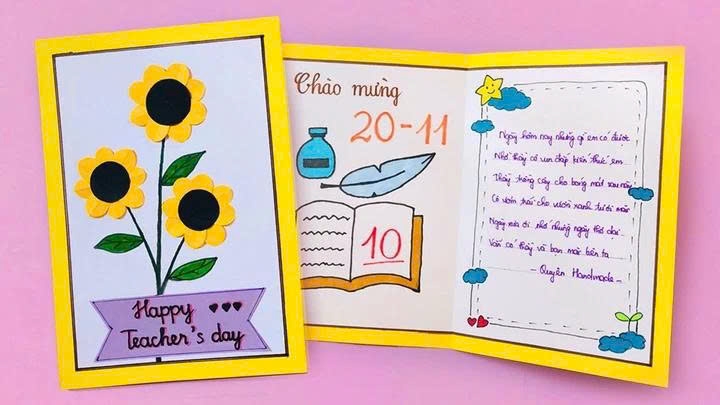 Happy
Teacher's day
Chào mừng
20-11
10
Ngày hôm nay những gì em có được
Nhờ thầy cô vun đắp kiến thức em
Thầy trồng cây cho bóng mát sau này
Cô vườn trái cho vườn xanh tươi mãi
Ngày xưa ơi nhớ những ngày thơ dại
Vẫn có thầy và bạn mãi bên ta
- Quyên Handmade -